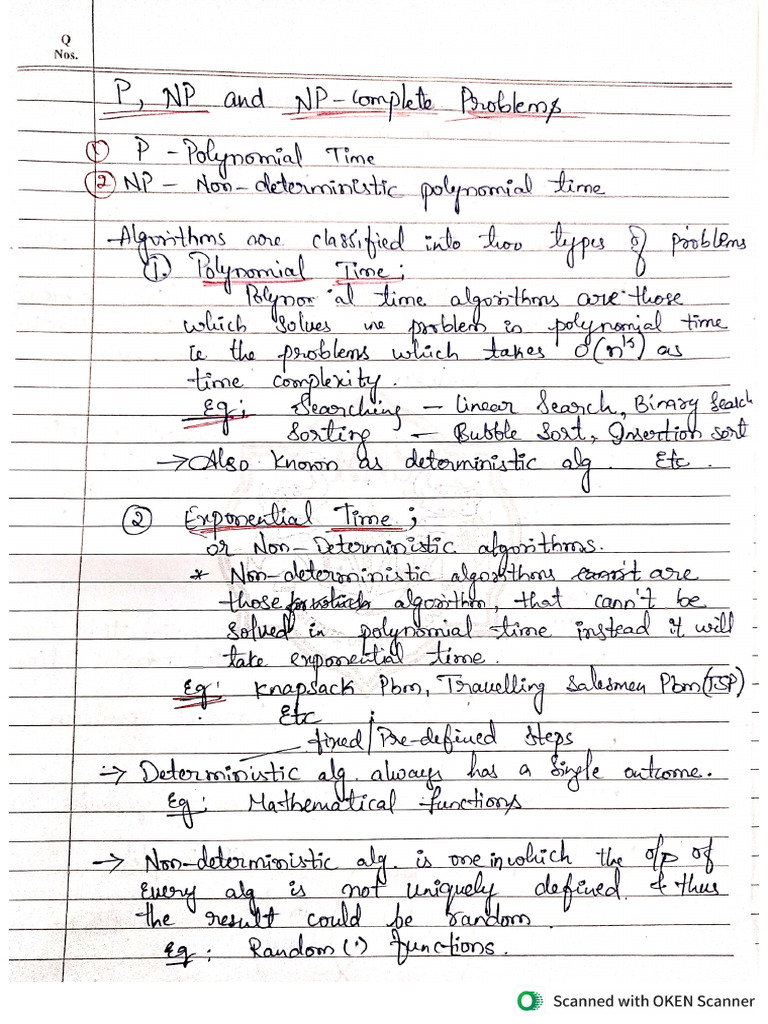 Q
Nos.
P, NP and NP-Complete Problems
① P - Polynomial Time
② NP - Non-deterministic polynomial time
Algorithms are classified into two types of problems
①. Polynomial Time;
Polynomial time algorithms are those
which solves the problem in polynomial time
ie the problems which takes O(n^k) as
time complexity.
Eg; Searching - Linear Search, Binary Search
Sorting - Bubble Sort, Insertion sort
→ Also known as deterministic alg. Etc.
② Exponential Time;
or Non-Deterministic algorithms.
* Non-deterministic algorithms are
those algorithm, that cann't be
solved in polynomial time instead it will
take exponential time.
Eg: Knapsack Pbm, Travelling Salesmen Pbm (TSP)
Etc ;
fixed/Pre-defined Steps
→ Deterministic alg. always has a single outcome.
Eg; Mathematical functions
→ Non-deterministic alg. is one in which the o/p of
every alg is not uniquely defined & thus
the result could be random.
Eg; Random(.) functions.
Scanned with OKEN Scanner